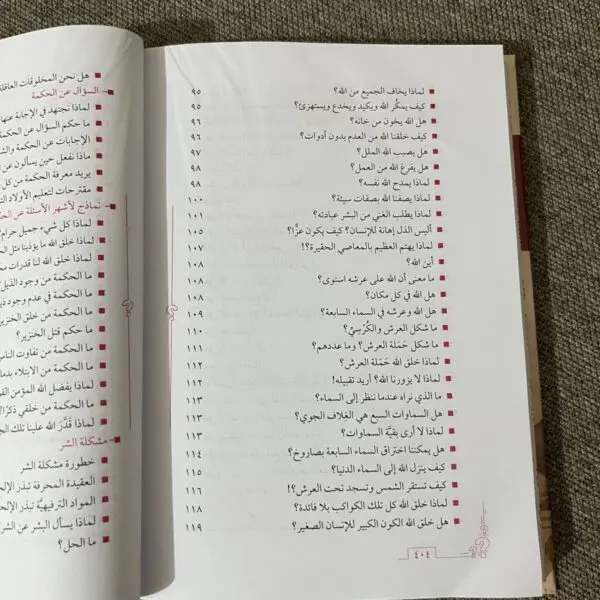 لماذا يخاف الجميع من الله؟ ٩٥
كيف يمكُر الله ويكيد ويخدع ويستهزئ؟ ٩٥
هل الله يخون من خانه؟ ٩٦
كيف خلقنا الله من العدم بدون أدوات؟ ٩٦
هل يصيب الله الملل؟ ٩٧
هل يفرغ الله من العمل؟ ٩٨
لماذا يمدح الله نفسه؟ ٩٨
لماذا يصفنا الله بصفات سيئة؟ ١٠٠
لماذا يطلب الغني من البشر عبادته؟ ١٠١
أليس الذل إهانة للإنسان؟ كيف يكون عزًّا؟ ١٠٥
لماذا يهتم العظيم بالمعاصي الحقيرة؟! ١٠٧
أين الله؟ ١٠٨
ما معنى أن الله على عرشه استوى؟ ١٠٨
هل الله في كل مكان؟ ١٠٨
هل الله وعرشه في السماء السابعة؟ ١٠٩
ما شكل العرش والكُرْسِيِّ؟ ١١٠
ما شكل حَمَلة العرش؟ وما عددهم؟ ١١١
لماذا خلق الله حَمَلة العرش؟ ١١٢
لماذا لا يزورنا الله؟ أريد تقبيله! ١١٢
ما الذي نراه عندما ننظر إلى السماء؟ ١١٣
هل السماوات السبع هي الغِلاف الجوي؟ ١١٣
لماذا لا أرى بقيَّة السماوات؟ ١١٣
هل يمكننا اختراق السماء السابعة بصاروخ؟ ١١٤
كيف ينزل الله إلى السماء الدنيا؟ ١١٥
كيف تستقر الشمس وتسجد تحت العرش؟! ١١٦
لماذا خلق الله كل تلك الكواكب بلا فائدة؟ ١١٨
هل خلق الله الكون الكبير للإنسان الصغير؟ ١١٩
٤٠٤
هل نحن المخلوقات العاقلة
السؤال عن الحكمة
لماذا نجتهد في الإجابة عنها
ما حكم السؤال عن الحكمة
الإجابات عن الحكمة
ماذا نفعل حين يسألون عن
يريد معرفة الحكمة من كل
مقترحات لتعليم الأولاد
نماذج لأشهر الأسئلة عن
لماذا كل شيء جميل حرام
لماذا خلق الله ما يؤذينا مثل
لماذا خلق الله لنا قدرات
ما الحكمة من وجود
ما الحكمة في عدم وجود
ما الحكمة من خلق الخنزير
ما حكم قتل الخنزير؟
ما الحكمة من تفاوت
ما الحكمة من الابتلاء
لماذا يفضل الله المؤمن
ما الحكمة من خلقي ذكرًا؟
لماذا قدَّر الله علينا تلك
مشكلة الشر
خطورة مشكلة الشر
العقيدة المحرفة تبذر
المواد الترفيهيَّة تبذر
لماذا يسأل البشر عن
ما الحل؟